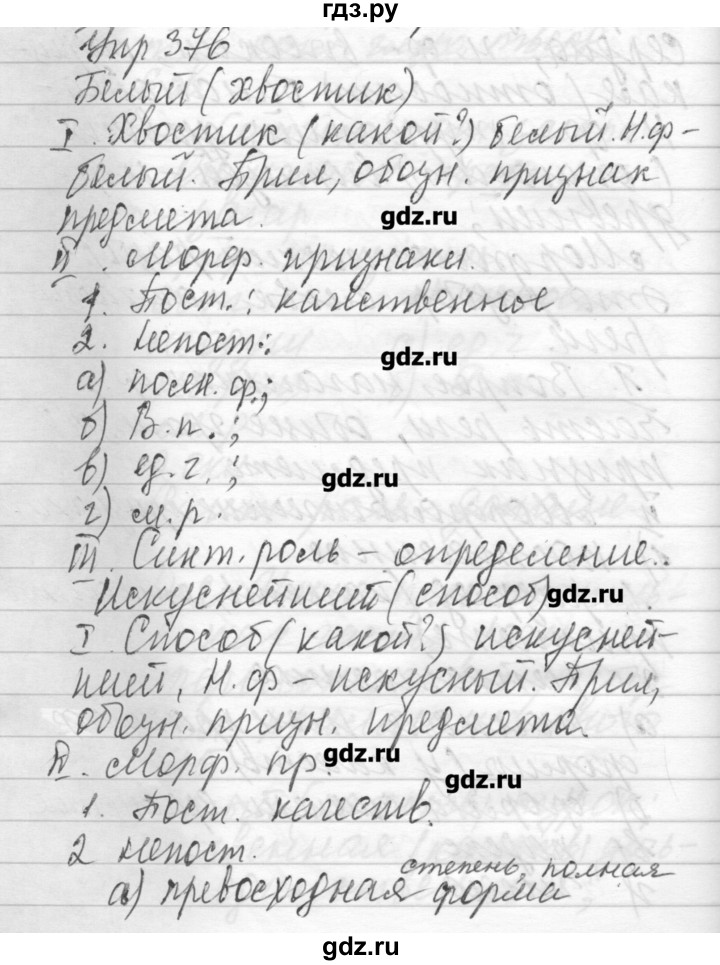 гдз.ру
Упр 376
Белый (хвостик)
I. Хвостик (какой?) белый. Н.ф-
белый. Прил, обозн. признак
предмета. gdz.ru
II. Морф. признаки.
1. Пост.: качественное
2. Непост.: gdz.ru
а) полн. ф.;
б) В.п.;
в) ед.ч.; gdz.ru
г) м.р.
III. Синт. роль - определение.
Искуснейший (способ) gdz.ru
I. Способ (какой?) искусней-
шией, Н.ф - искусный. Прил,
обозн. призн. предмета.
II. Морф. пр. gdz.ru
1. Пост. качеств. gdz.ru
2 непост.
степень, полная
а) превосходная форма
gdz.ru